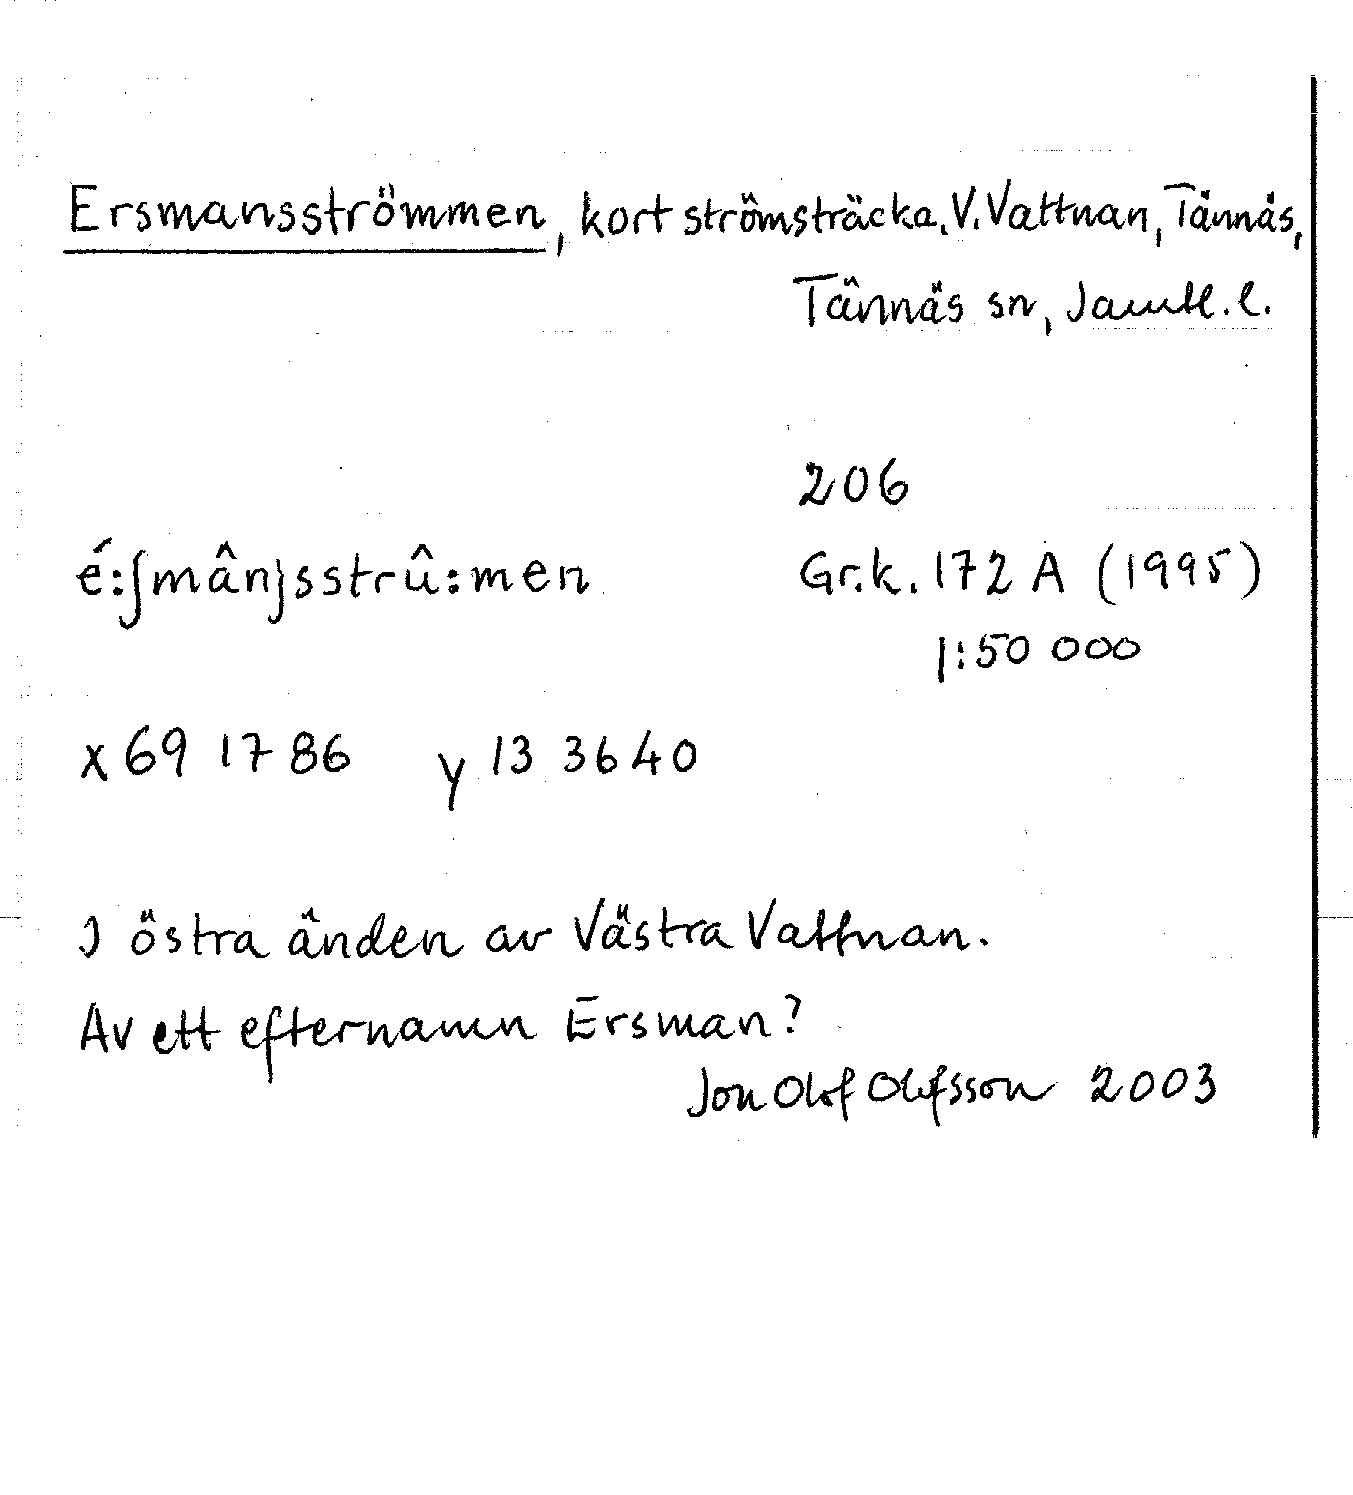 Ersmansströmmen, kort strömsträcka. V. Vattnan, Tännäs,
Tännäs sn, Jämtl. l.
206
é:ʃmân}sstrû:men Gr.k. 172 A (1995)
1:50 000
x 69 17 86 y 13 3640
I östra änden av Västra Vattnan.
Av ett efternamn Ersman?
Jon Olof Olofsson 2003